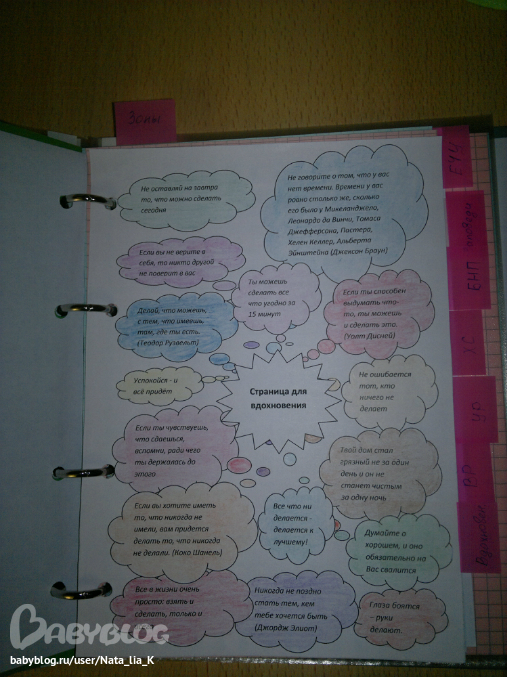 Зоны
Не оставляй на завтра
то, что можно сделать
сегодня
Не говорите о том, что у вас
нет времени. Времени у вас
ровно столько же, сколько
его было у Микеланджело,
Леонардо да Винчи, Томаса
Джефферсона, Пастера,
Хелен Келлер, Альберта
Эйнштейна (Джексон Браун)
Если вы не верите в
себя, то никто другой
не поверит в вас
Ты можешь
сделать все
что угодно за
15 минут
Если ты способен
выдумать что-
то, ты можешь
и сделать это.
(Уолт Дисней)
Делай, что можешь,
с тем, что имеешь,
там, где ты есть.
(Теодор Рузвельт)
Успокойся - и
всё придёт
Страница для
вдохновения
Не ошибается
тот, кто
ничего не
делает
Если ты чувствуешь,
что сдаешься,
вспомни, ради чего
ты держалась до
этого
Твой дом стал
грязный не за один
день и он не
станет чистым
за одну ночь
Если вы хотите иметь
то, что никогда не
имели, вам придется
делать то, что никогда
не делали. (Коко Шанель)
Все что ни
делается -
делается к
лучшему!
Думайте о
хорошем, и оно
обязательно на
Вас свалится
Все в жизни очень
просто: взять и
сделать, только и
Никогда не поздно
стать тем, кем
тебе хочется быть
(Джордж Элиот)
Глаза боятся
- руки
делают
ЕНП
BABYBLOG
babyblog.ru/user/Nata_lia_K